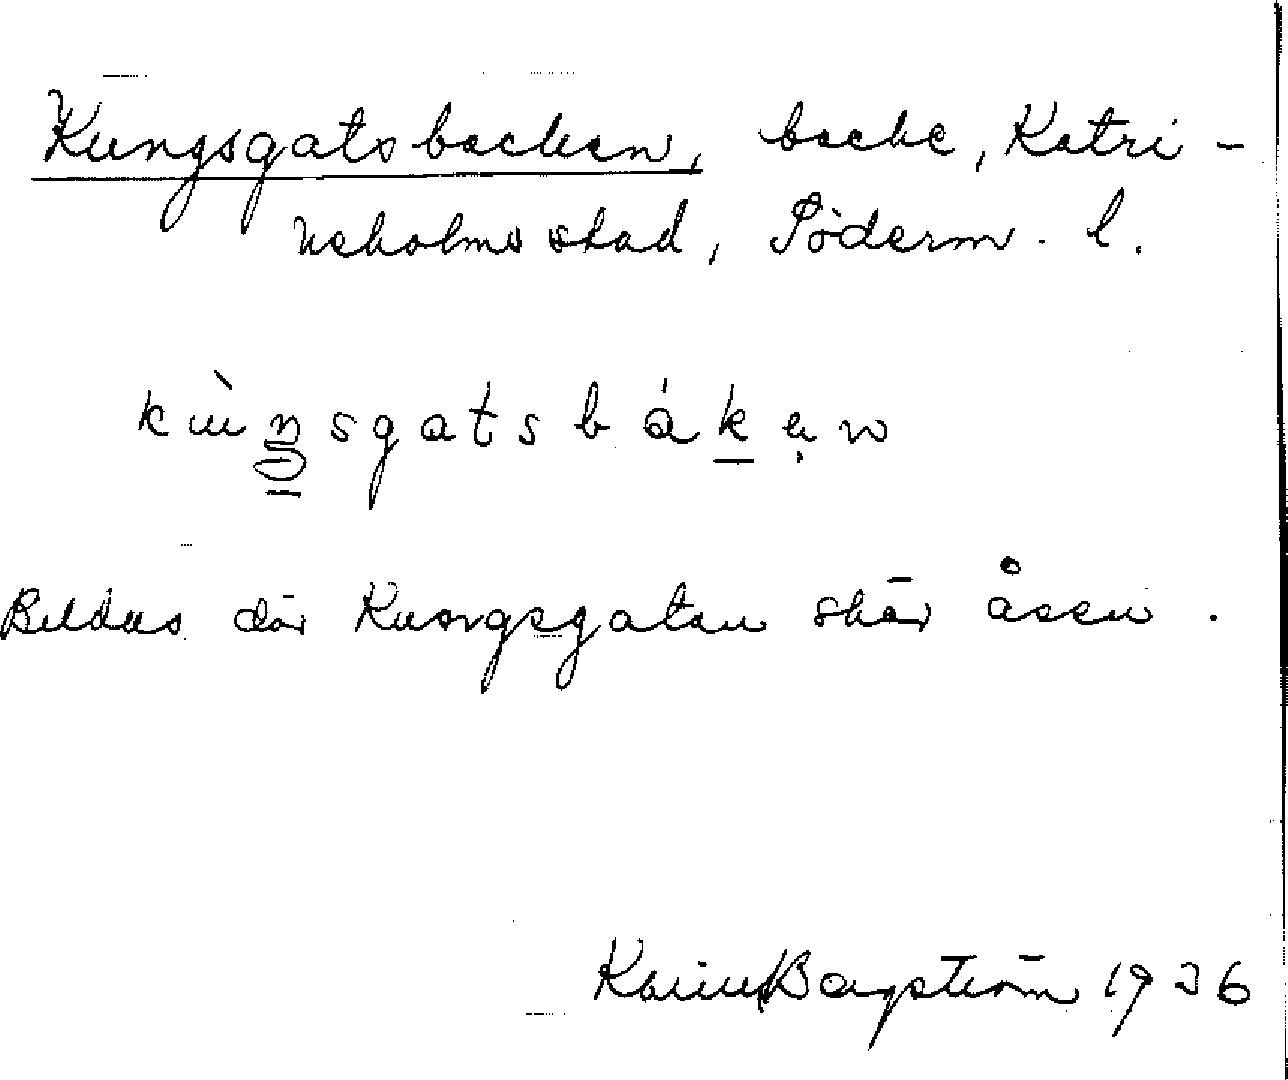 Kungsgatsbacken, backe, Katri-
neholms stad, Söderm. l.
kùŋsgatsbákẹn
Bildas där Kungsgatan skär åsen.
Karin Bergström 1936